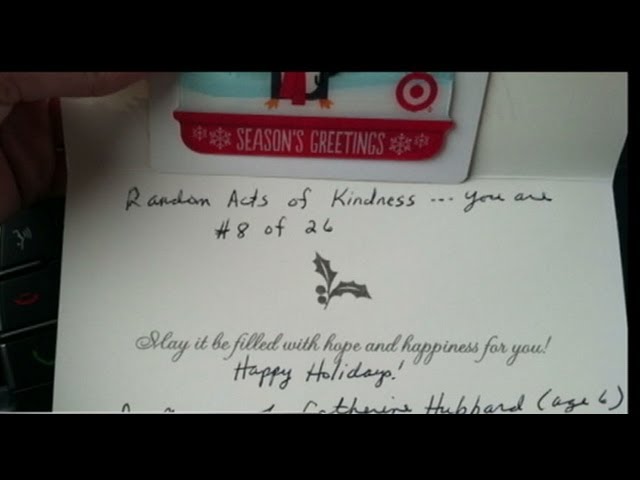 SEASON'S GREETINGS
Random Acts of Kindness ... you are
#8 of 26
May it be filled with hope and happiness for you!
Happy Holidays!
Catherine Hubbard (age 6)